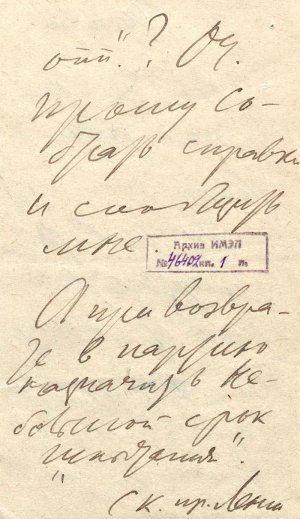 отп."? Оч.
прошу со-
брать справки
и сообщить
мне.
Архив ИМЭЛ
№ 46402 кп. 1 п.
А при возвра-
те в партию
назначать не-
большой срок
"испытания".
с к. пр. Ленин